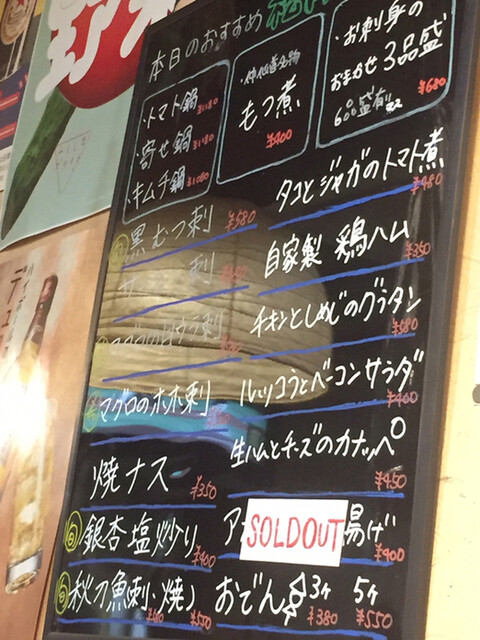 野
本日のおすすめ
・トマト鍋 ¥1180
・寄せ鍋 ¥1180
・キムチ鍋 ¥1080
もつ煮
¥400
・お刺身の
おまかせ3品盛
¥680
黒むつ刺 ¥580
刺
刺
マグロのホホ刺
焼ナス
¥350
旬 銀杏塩炒り
¥400
旬 秋刀魚(刺・焼)
¥550
タコとジャガのトマト煮
¥480
自家製 鶏ハム
¥350
チキンとしめじのグラタン
¥580
ルッコラとベーコンサラダ
¥400
生ハムとチーズのカナッペ
¥450
ア SOLDOUT 揚げ
¥400
おでん 3ヶ 5ヶ
¥380 ¥550